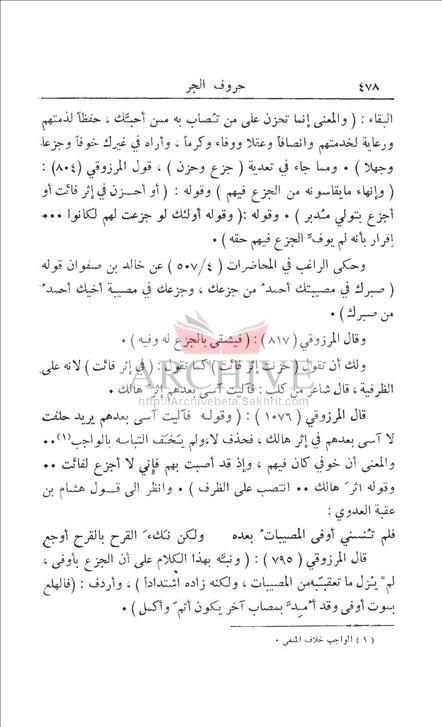 ٤٧٨ حروف الجر
البقاء : ( والمعنى إنما تحزن على من تُصاب به ممن أحبّتك ، حفظاً لذمتهم
ورعاية لخدمتهم وانصافاً وعقلا ووفاء وكرماً ، وأراه في غيرك خوفاً وجزعا
وجهلا ) • ومما جاء في تعدية ( جزع وحزن ) ، قول المرزوقي (٨٠٤) :
( وإنهاء مايقاسونه من الجزع فيهم ) وقوله : ( أو أحزن في إثر فائت أو
أجزع بتولي مُدبر ) • وقوله :( وقوله أولئك لو جزعت لهم لكانوا •••
إقرار بأنه لم يوفّ الجزع فيهم حقه ) •
وحكى الراغب في المحاضرات ( ٥٠٧/٤ ) عن خالد بن صفوان قوله
( صبرك في مصيبتك أحمدُ من جزعك ، وجزعك في مصيبة أخيك أحمدُ
من صبرك ) •
وقال المرزوقي ( ٨١٧ ) : ( فيشقى بالجزع له وفيه ) •
ولك أن تقول ( حزنت إثر فائت ) كما تقول : ( في إثر فائت ) لانه على
الظرفية ، قال شاعر من كلب : فآليت آسى بعدهم إثر هالك •
ARCHIVE
http://Archivebeta.Sakhrit.com
قال المرزوقي ( ١٠٧٦ ) : ( وقوله فآليت آسى بعدهم يريد حلفت
لا آسى بعدهم في إثر هالك ، فحذف لا،ولم يَخَف التباسه بالواجب(١)••
والمعنى أن خوفي كان فيهم ، وإذ قد أصبت بهم فإني لا أجزع لفائت ••
وقوله اثرَ هالك •• انتصب على الظرف ) • وانظر الى قول هشام بن
عقبة العدوي :
فلم تُنسني أوفى المصيباتُ بعده ولكن نكءَ القرح بالقرح أوجع
قال المرزوقي ( ٧٩٥ ) : ( ونبّه بهذا الكلام على أن الجزع بأوفى ،
لم يُزل ما تعقبّه من المصيبات ، ولكنه زاده اشتداداً ) ، وأردف : (فالهلع
بموت أوفى وقد أُمِدّ بمصاب آخر يكون أتمّ وأكمل ) •
( ١ ) الواجب خلاف المنفي •